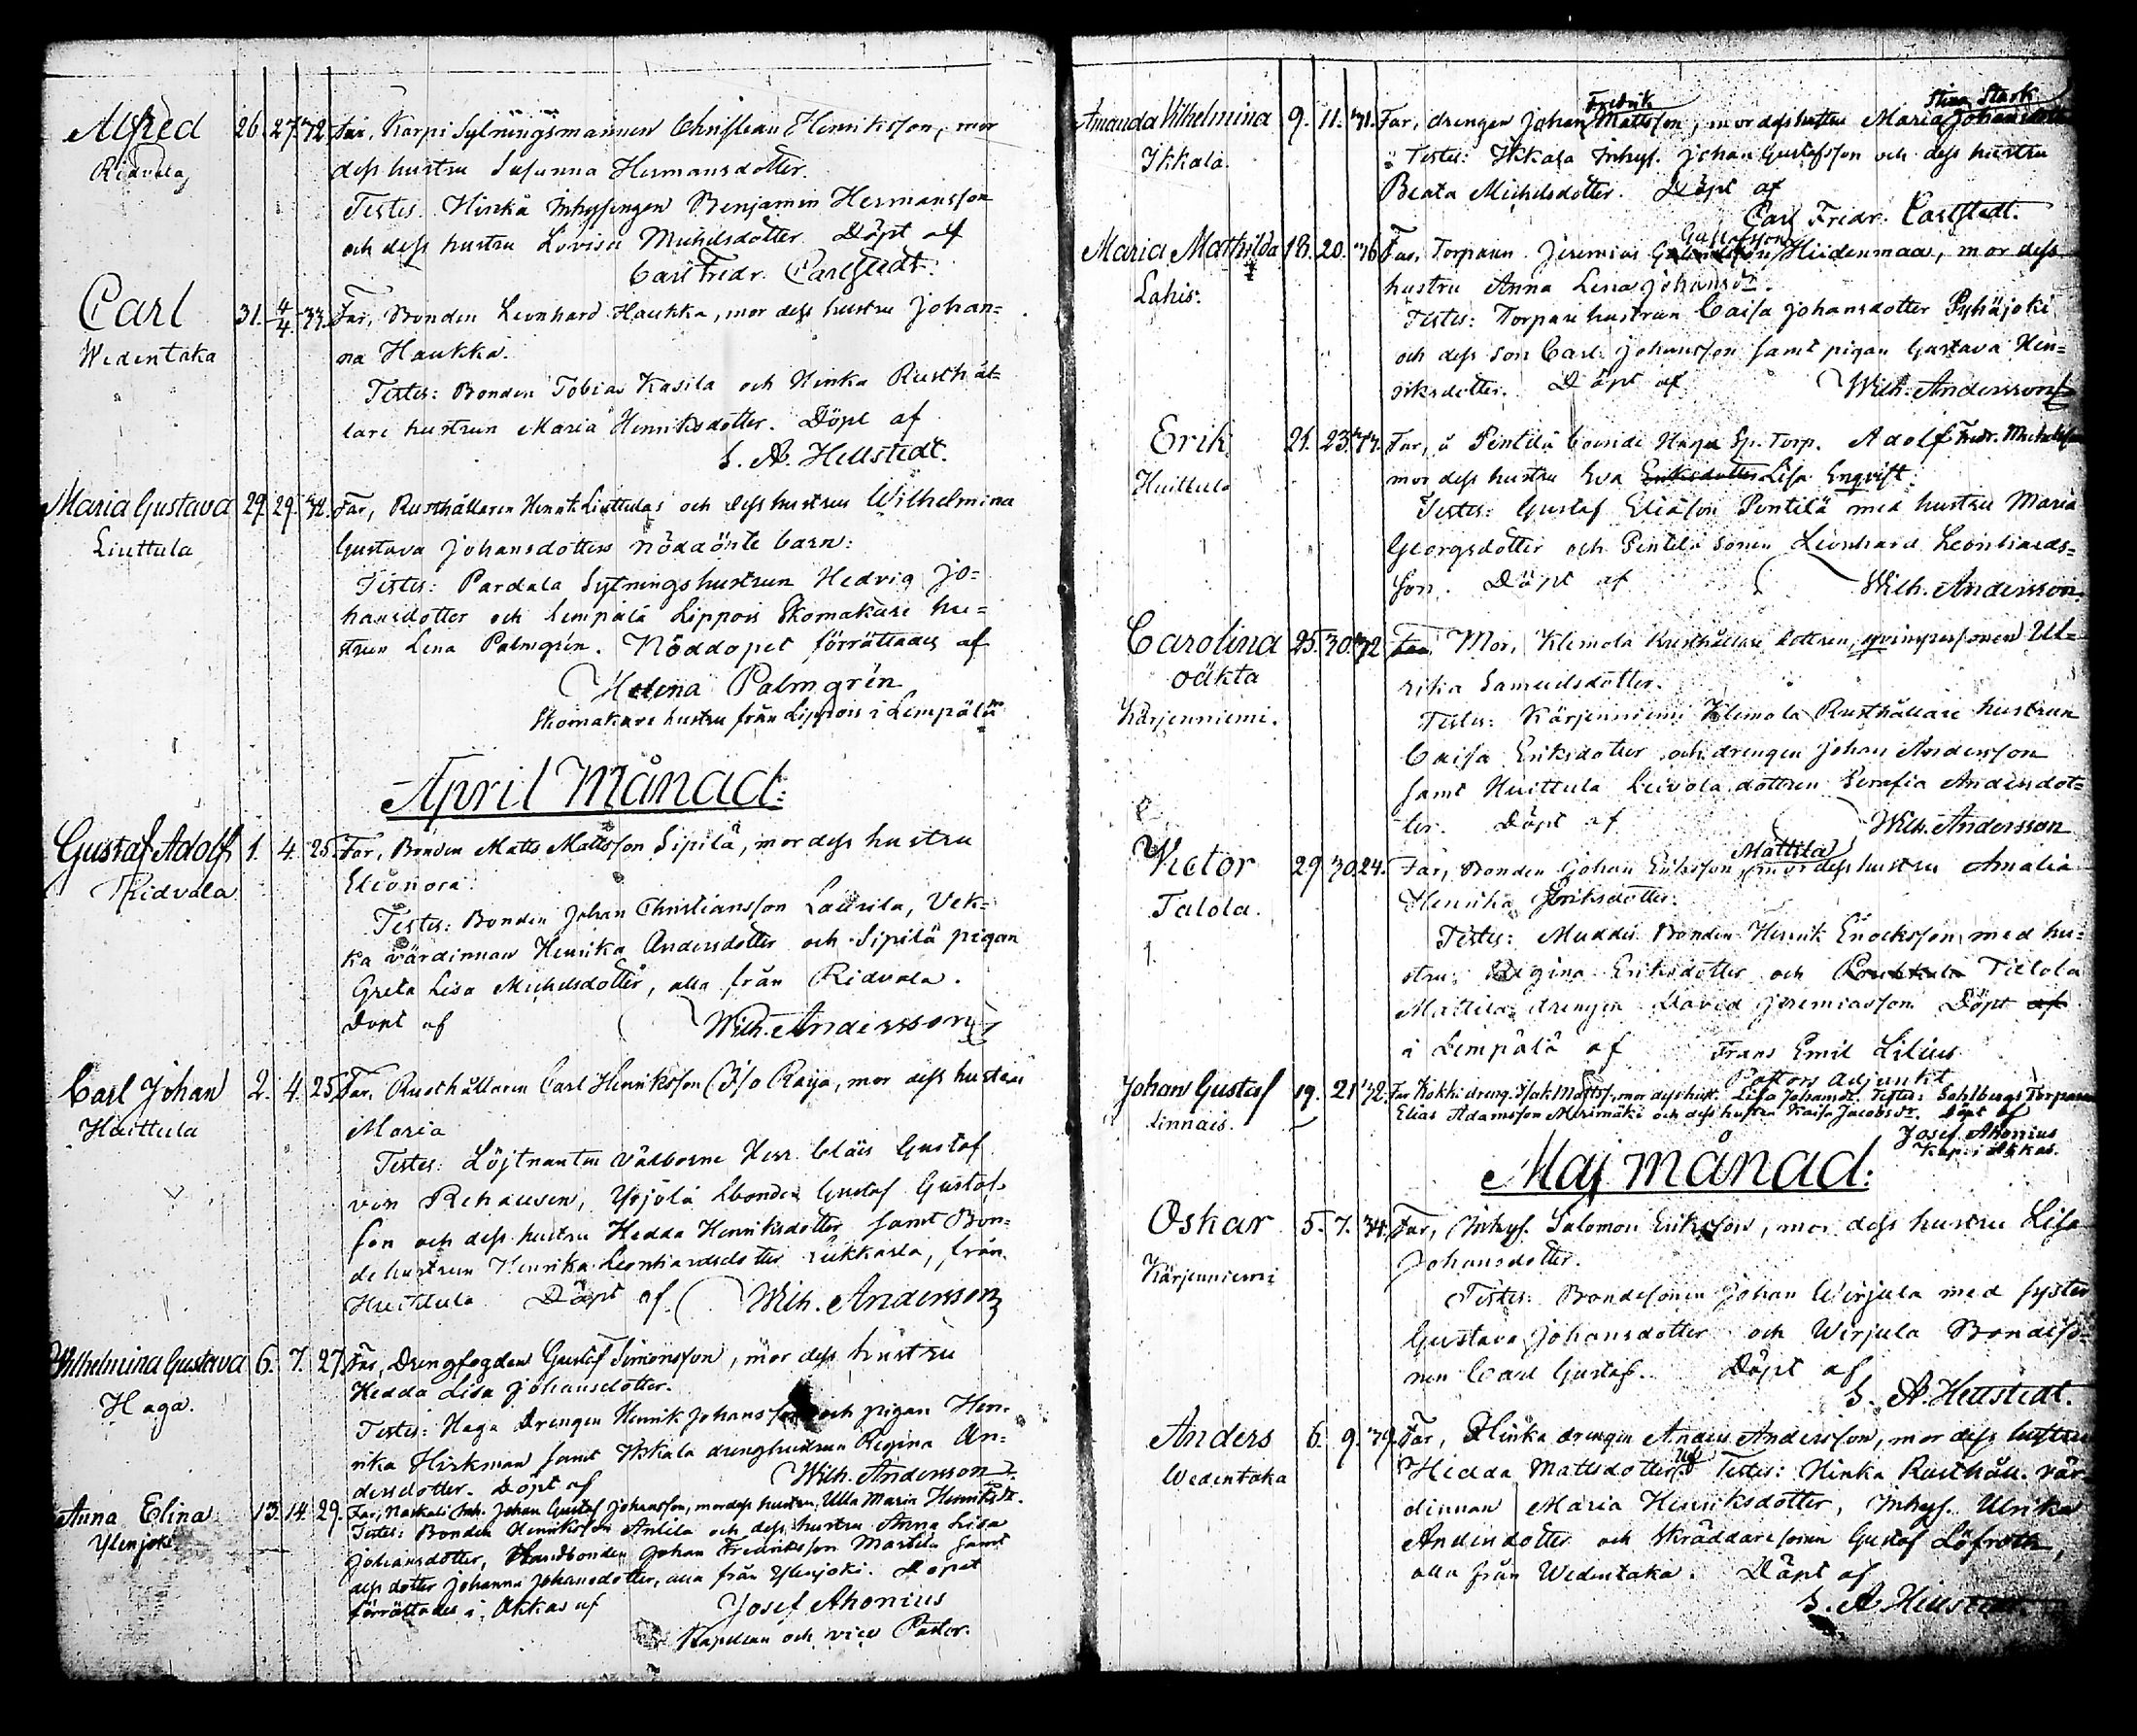 Alfred 26. 27. 72. Far, Karpi Sytningsmannen Christian Henriksson, mor
Ridvala dess hustru Susanna Hermansdotter.
Testes. Hinka Inhysingen Benjamin Hermansson
och dess hustru Lovisa Michelsdotter Döpt af
Carl Fredr. Carlstedt.
Carl 31. 4/4 33. Far, Bonden Leonhard Haukka, mor dess hustru Johan=
Wedentaka na Haukka.
Testes: Bonden Tobias Kasila och Hinka Rusthål=
lare hustrun Maria Henriksdotter. Döpt af
S. A. Hellstedt.
Maria Gustava 29. 29. 32. Far, Rusthållaren Henrik Liuttulas och dess hustrus Wilhelmina
Liuttula Gustava Johansdotters nöddöpte barn:
Testes: Pardala Sytningshustrun Hedvig Jo=
hansdotter och Lempälä Lippois Skomakare hu=
strun Lena Palmgrén. Nöddopet förrättades af
Helena Palmgrén
Skomakare hustru från Lippois i Lempälä
April Månad:
Gustaf Adolf 1. 4. 25. Far, Bonden Matts Mattsson Sipilä, mor dess hustru
Ridvala Eleonora.
Testes: Bonden Johan Christiansson Laurila, Vek=
ka värdinnan Henrika Andersdotter och Sipilä pigan
Greta Lisa Michelsdotter, alla från Ridvala.
Döpt af Wilh. Andersson
Carl Johan 2. 4. 25. Far, Rusthållaren Carl Henriksson Iso Raija, mor dess hustru
Huittula Maria
Testes: Löjtnanten Välborne Herr Claës Gustaf
von Rehausen, Yrjölä Bonden Gustaf Gustafs
son och dess hustru Hedda Henriksdotter samt Bon=
de hustrun Henrika Leonhardsdotter Lukkarla, från
Huittula Döpt af Wilh. Andersson
Wilhelmina Gustava 6. 7. 27. Far, Drengfogden Gustaf Simonsson, mor dess hustru
Haga. Hedda Lisa Johansdotter.
Testes: Haga Drengen Henrik Johansson och pigan Hen=
rika Hirkman samt Ikkala drenghustrun Regina An=
dersdotter. Döpt af Wilh. Andersson
Anna Elina 13. 14. 29. Far, Naskali Inh. Johan Gustaf Johansson, mor dess hustru, Ulla Maria Henriksdr.
Ylenjoki Testes: Bonden Henriksson Anlila och dess hustru Anna Lisa
Johansdotter, Landbonden Johan Fredriksson Martila samt
dess dotter Johanna Johansdotter, alla från Ylenjoki. Dopet
förrättades i Akkas af Josef Ahonius
Kapellan och vice Pastor.
Amanda Vilhelmina 9. 11. 31. Far, drengen Johan Fredrik Mattsson, mor dess hustru Maria Stina Stark
Ikkala. Testes: Ikkala Inhys. Johan Gustafsson och dess hustru
Beata Michelsdotter. Döpt af
Carl Fredr. Carlstedt.
Maria Mathilda 18. 20. 36. Far, Torparen Jeremias Gustafsson Hiidenmaa, mor dess
Lahis. hustru Anna Lena Johansdr.
Testes: Torpare hustrun Caisa Johansdotter Pyhäjoki
och dess son Carl Johansson samt pigan Gustava Hen=
riksdotter. Döpt af Wilh. Andersson
Erik 21. 23. Far, å Pentilä boende Haga Sp. Torp. Adolf Fredr. Michelsson
Huittula mor dess hustru Eva Eriksdotter Lisa Enqvist.
Testes: Gustaf Eliasson Pentilä med hustru Maria
Georgsdotter och Pentilä sonen Leonhard Leonhards=
son. Döpt af Wilh. Andersson.
Carolina 25. 30. 32 Far Mor, Klemola Rusthållare dottren, qvinspersonen Ul=
oäkta rika Samuelsdotter.
Kärjenniemi. Testes: Kärjenniemi Klemola Rusthållare hustrun
Caisa Eriksdotter och drengen Johan Andersson
samt Huittula Leivola dottren Serafia Andersdot=
ter. Döpt af Wilh. Andersson
Victor 29 30. 24. Far, Bonden Johan Eriksson Mattila, mor dess hustru Amalia
Talola. Henrika Eriksdotter.
Testes: Muddi Bonden Henrik Enocksson, med hu=
stru Regina Eriksdotter och Roukkula Talola
Mattila drengen David Jeremiasson Döpt af
i Lempälä af Frans Emil Lilius
Pastors Adjunkt
Johan Gustaf 19. 21. 32. Far Kokki dreng. Isak Mattss., mor dess hust. Lisa Johansdr. Testes: Sahlbergs Torparen
Linnais. Elias Adamsson Myrimäki och dess hustru Kaisa Jacobsdr. Döpt af
Josef Ahonius
Kap. i Akkas.
Maj månad:
Oskar 5. 7. 34. Far, Inhys. Salomon Eriksson, mor dess hustru Lisa
Kärjenniemi Johansdotter.
Testes: Bondesonen Johan Wirjula med syster
Gustava Johansdotter och Wirjula Bondeso=
nen Carl Gustaf. Döpt af
S. A. Hellstedt.
Anders 6. 9. 39. Far, Hinka drengen Anders Andersson, mor dess hustru
Wedentaka Hedda Mattsdotter. Testes: Hinka Rusthåll. vär=
dinnan Maria Henriksdotter, Inhys. Ulrika
Andersdotter och Skräddaresonen Gustaf Löfroth,
alla från Wedentaka. Döpt af
S. A. Hellstedt.